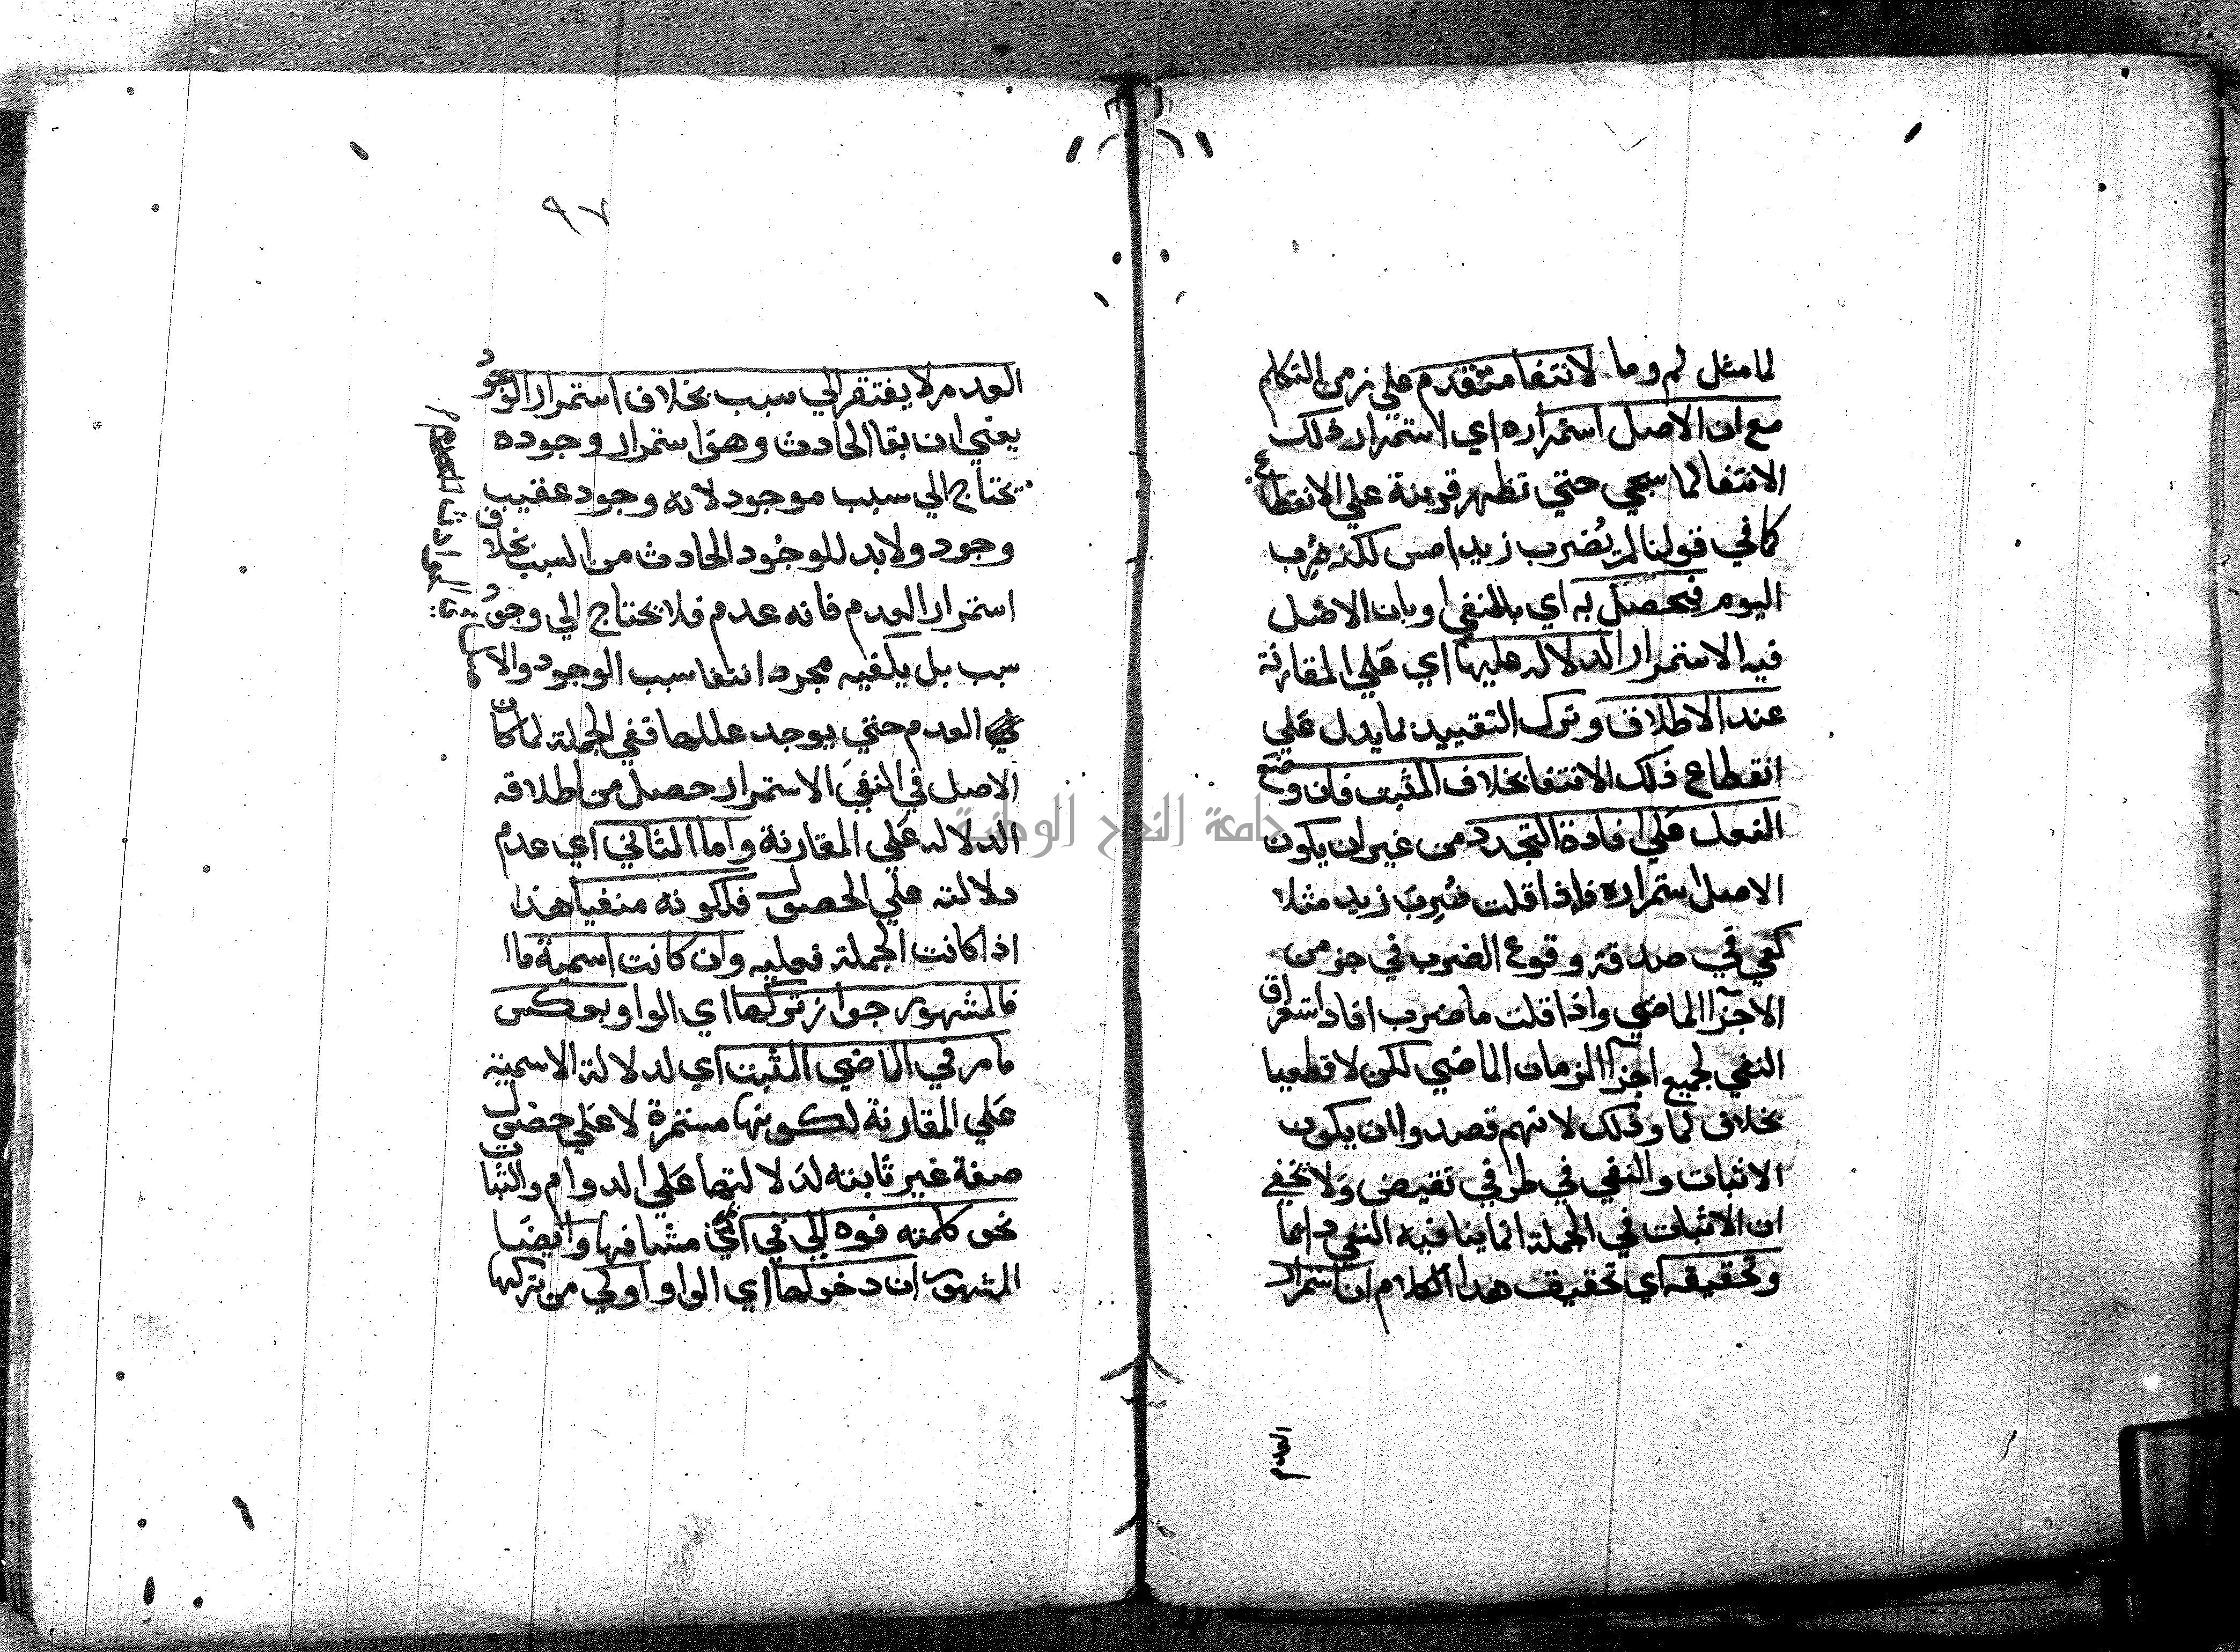 لما مثل لم وما لانتفا متقدم علي زمن التكلم
مع ان الاصل استمراره اي استمرار ذلك
الانتفا لما سيجي حتي تظهر قرينة علي الانقطاع
كما في قولنا لم يُضرب زيد امس لكنه ضُرِب
اليوم فيحصل به اي بالنفي او بان الاصل
فيه الاستمرار الدلاله عليها اي علي المقارنة
عند الاطلاق وترك التقييد بما يدل علي
انقطاع ذلك الانتفا بخلاف المثبت فان وضع
الفعل علي افادة التجدد من غير ان يكون
الاصل استمراره فاذا قلت ضُرِبَ زيد مثلا
كفي في صدقه وقوع الضرب في جز من
الاجزآ الماضي واذا قلت ما ضرب افاد استغراق
النفي لجميع اجزآ الزمان الماضي لكن لا قطعيا
بخلاف لما وذلك لانهم قصدوا ان يكون
الاثبات والنفي في طرفي نقيض ولا يخفي
ان الاثبات في الجملة انما ينافيه النفي دايما
وتحقيقه اي تحقيق هذا الكلام ان استمرار
العدم
٩٧
العدم لا يفتقر الي سبب بخلاف استمرار الوجود
يعني ان بقا الحادث وهو استمرار وجوده
يحتاج الي سبب موجود لانه وجود عقيب
وجود ولا بد للوجود الحادث من السبب بخلاف
استمرار العدم فانه عدم فلا يحتاج الي وجود
سبب بل يكفيه مجرد انتفا سبب الوجود والا
العدم حتي يوجد عللها ففي الجملة لما كان
الاصل في النفي الاستمرار حصل من اطلاقه
الدلاله علي المقارنة واما الثاني اي عدم
دلالته علي الحصول فلكونه منفيا هذا
اذا كانت الجملة فعليه وان كانت اسمية
فالمشهور جواز تركها اي الواو بعكس
ما مر في الماضي المثبت اي لدلالة الاسمية
علي المقارنة لكونها مستمرة لا علي حصول
صفة غير ثابته لدلالتها علي الدوام والثبات
نحو كلمته فوه الي في اي مشافها وايضا
المشهور ان دخولها اي الواو اولي من تركها